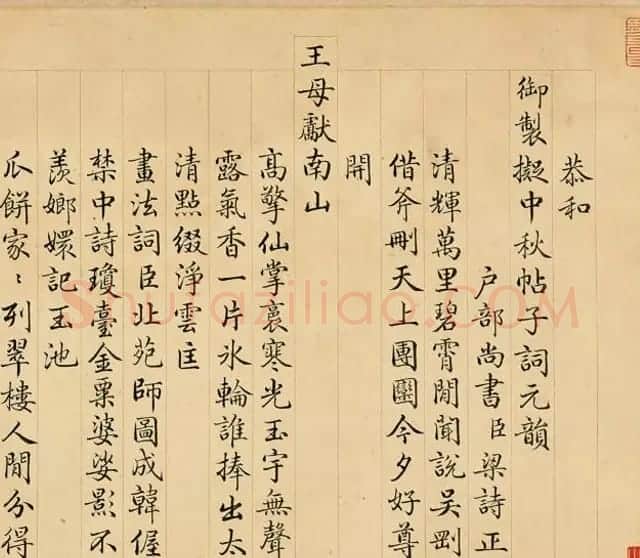 恭和
御製擬中秋帖子詞元韻
户部尚書臣梁詩正
清輝萬里碧霄閒聞說吴剛
借斧刪天上團圞今夕好尊
開
王母獻南山
高擎仙掌裛寒光玉宇無聲
露氣香一片氷輪誰捧出太
清點綴淨雲匡
畫法詞臣北苑師圖成韓偓
禁中詩瓊臺金粟婆娑影不
羨嫏嬛記玉池
瓜餅家〻列翠樓人閒分得
Shufaziliao.COM